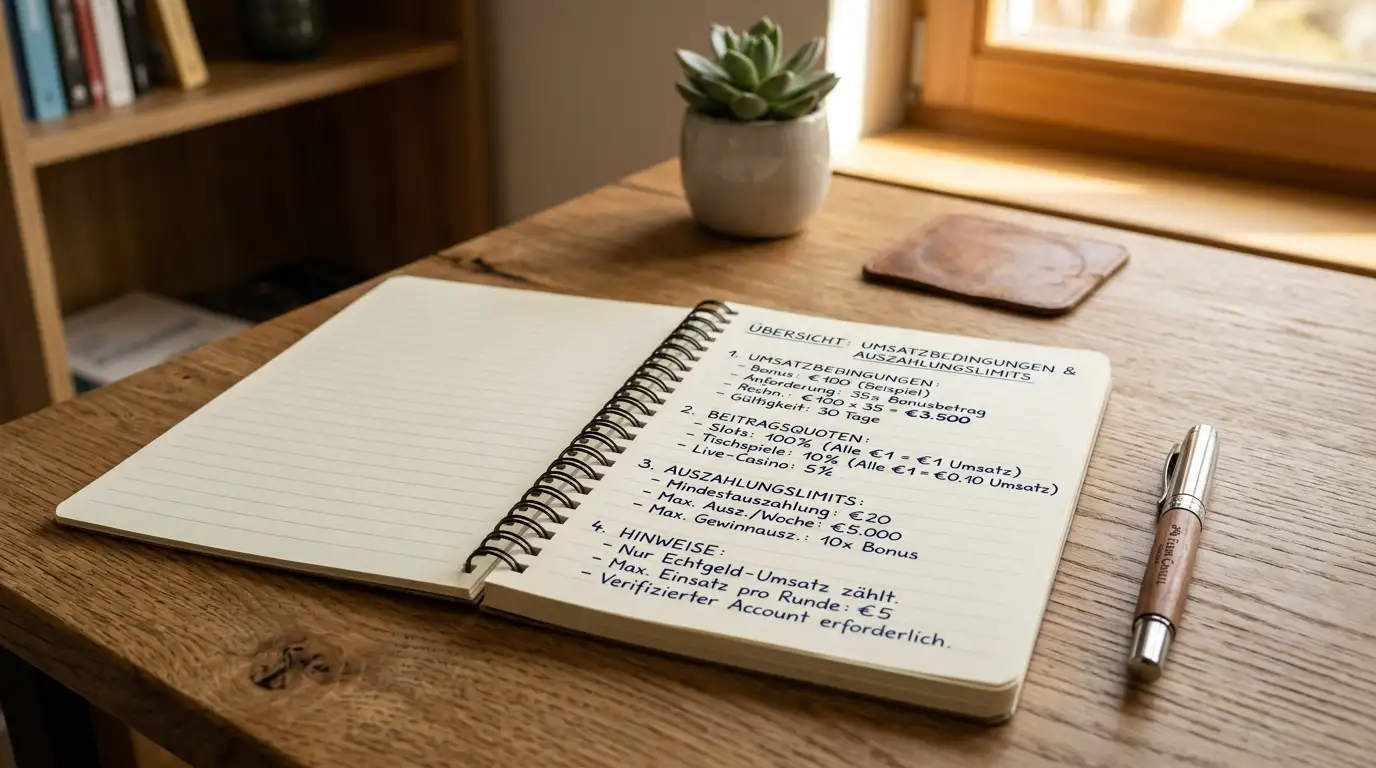 ÜBERSICHT: UMSATZBEDINGUNGEN &
AUSZAHLUNGSLIMITS
1. UMSATZBEDINGUNGEN:
- Bonus: €100 (Beispiel)
- Anforderung: 35x Bonusbetrag
- Reshn.: €100 x 35 = €3.500
- Gültigkeit: 30 Tage
2. BEITRAGSQUOTEN:
- Slots: 100% (Alle €1 = €1 Umsatz)
- Tischspiele: 10% (Alle €1 = €0.10 Umsatz)
- Live-Casino: 5%
3. AUSZAHLUNGSLIMITS:
- Mindestauszahlung: €20
- Max. Ausz./Woche: €5.000
- Max. Gewinnausz.: 10x Bonus
4. HINWEISE:
- Nur Echtgeld-Umsatz zählt.
- Max. Einsatz pro Runde: €5
- Verifizierter Account erforderlich.